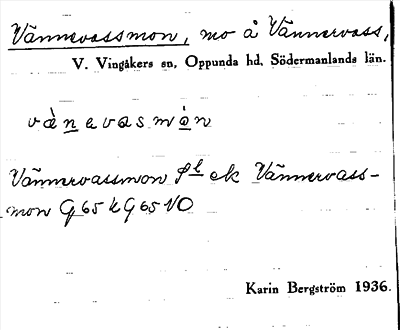 Vännevassmon, mo å Vännevass,
V. Vingåkers sn, Oppunda hd, Södermanlands län.
vä̀nevasmȧ̀n
Vännevassmon Sk ek Vännevass-
mon G 65 k G 65 NO
Karin Bergström 1936.